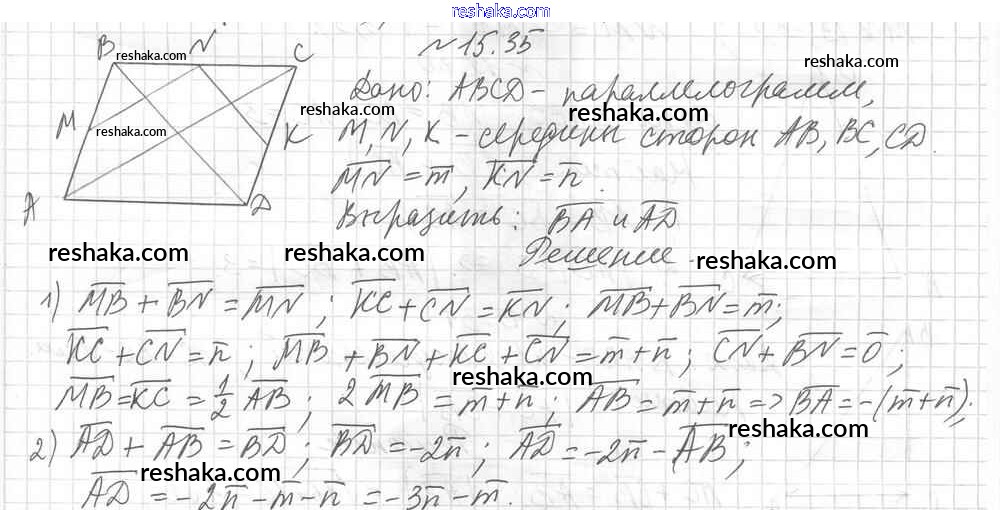 reshaka.com
№15.35
B reshaka.com N C
reshaka.com
Дано: ABCD - параллелограмм,
reshaka.com reshaka.com
M reshaka.com K M, N, K - середины сторон AB, BC, CD.
M̅N̅ = m̅, K̅N̅ = n̅.
A D Выразить: B̅A̅ и A̅D̅
reshaka.com reshaka.com Решение reshaka.com
1) M̅B̅ + B̅N̅ = M̅N̅; K̅C̅ + C̅N̅ = K̅N̅; M̅B̅ + B̅N̅ = m̅;
K̅C̅ + C̅N̅ = n̅; M̅B̅ + B̅N̅ + K̅C̅ + C̅N̅ = m̅ + n̅; C̅N̅ + B̅N̅ = 0̅;
reshaka.com
M̅B̅ = K̅C̅ = 1/2 A̅B̅; 2 M̅B̅ = m̅ + n̅; A̅B̅ = m̅ + n̅ => B̅A̅ = -(m̅ + n̅);
reshaka.com
2) A̅D̅ + A̅B̅ = B̅D̅; B̅D̅ = -2n̅; A̅D̅ = -2n̅ - A̅B̅;
reshaka.com
A̅D̅ = -2n̅ - m̅ - n̅ = -3n̅ - m̅.